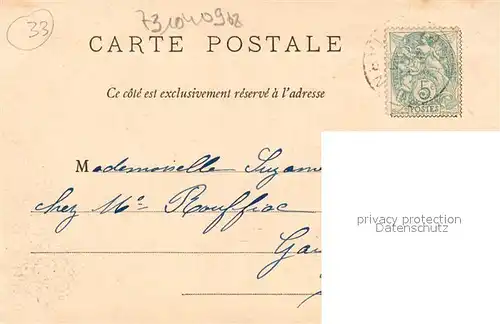 33
73104098
CARTE POSTALE
5
POSTES
Ce côté est exclusivement réservé à l'adresse
Mademoiselle Suzan
chez Me Rouffiac
Gai
privacy protection
Datenschutz